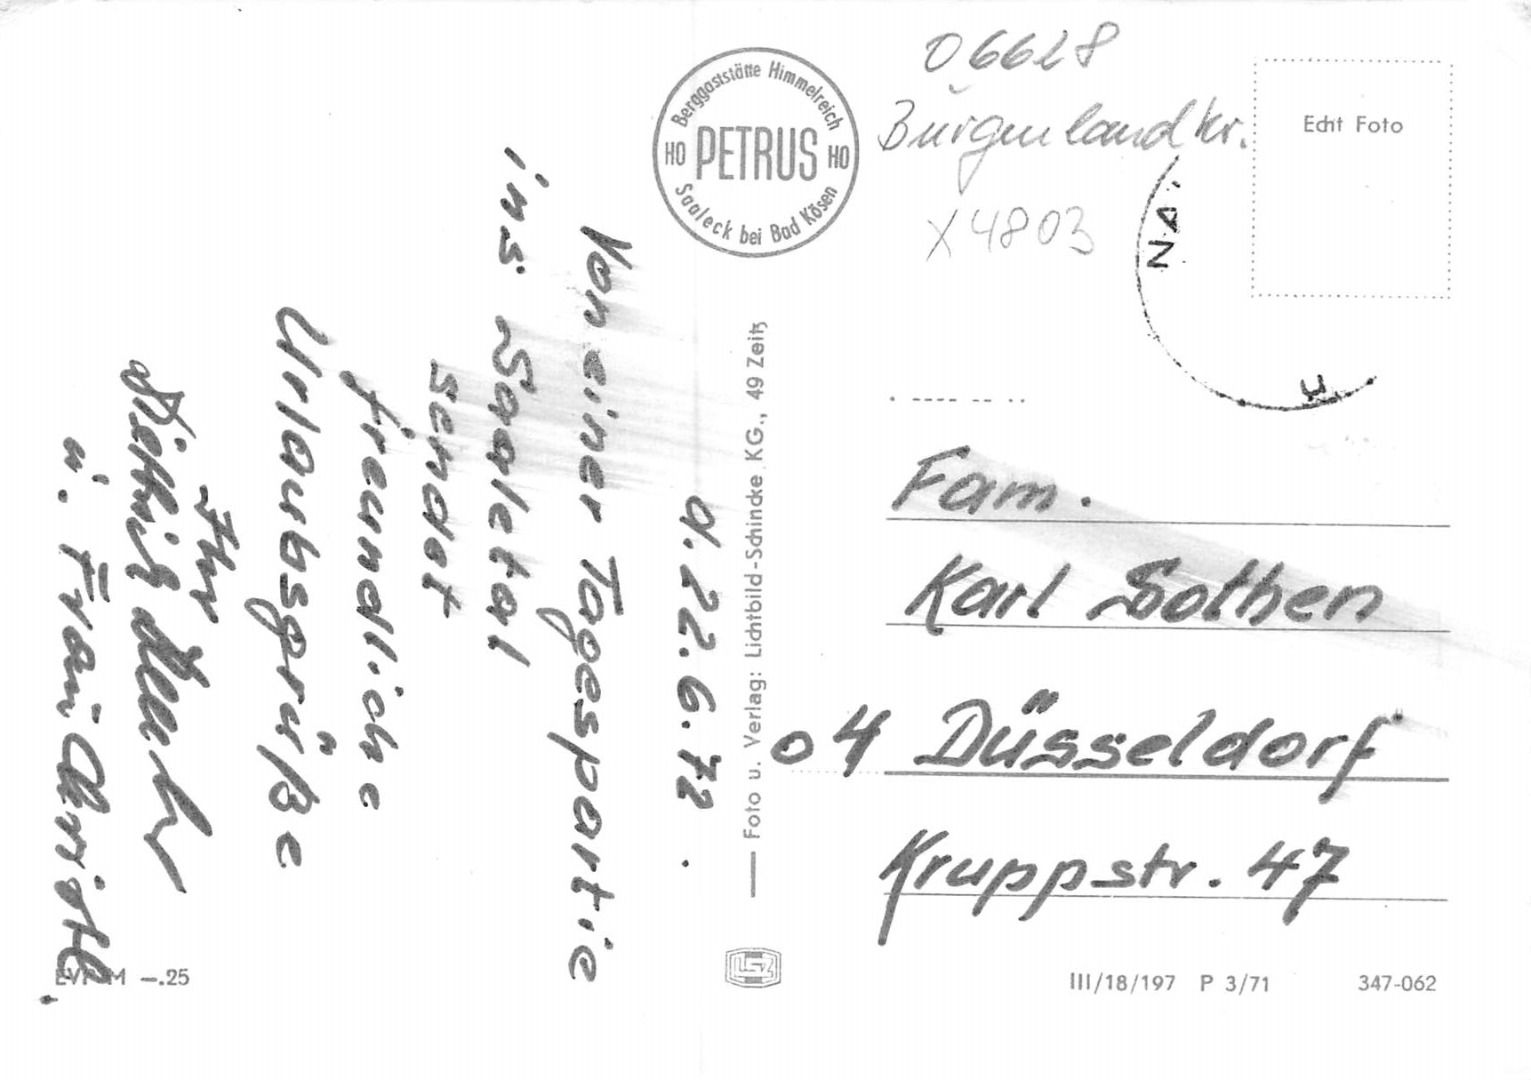 d. 22.6.72.
Von einer Tagespartie
ins Saaletal
sendet
freundliche
Urlaubsgrüße
Ihr
u. Frau
EVP M –.25
Berggaststätte Himmelreich
HO PETRUS HO
Saaleck bei Bad Kösen
Foto u. Verlag: Lichtbild-Schincke KG., 49 Zeitz
06628
Burgenlandkr.
X 4803
Echt Foto
NA
Fam.
Karl Sothen
04 Düsseldorf
Kruppstr. 47
III/18/197 P 3/71
347-062